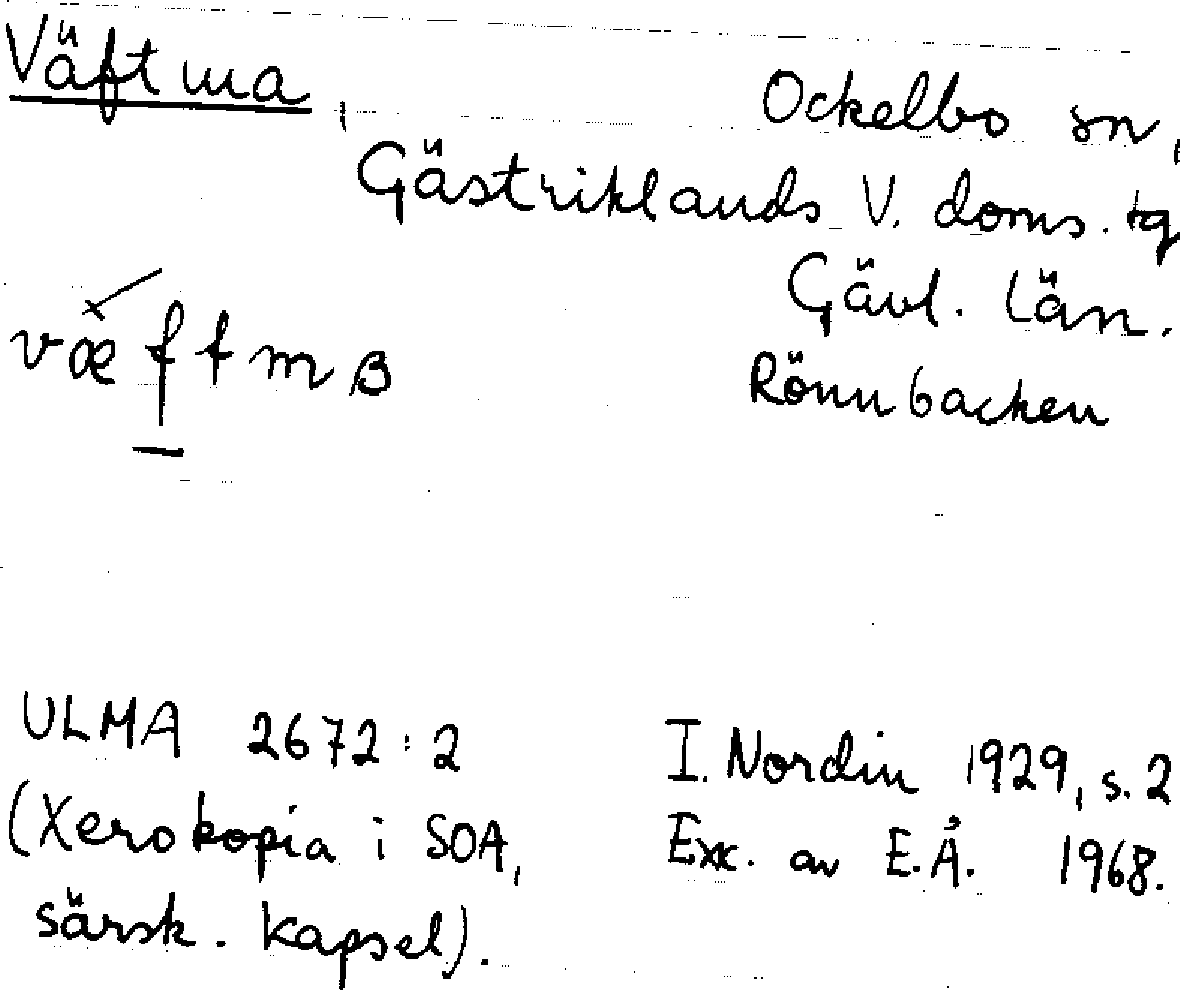 Väftma, Ockelbo sn,
Gästriklands V. doms. tg
Gävl. län.
væftmɞ Rönnbacken
ULMA 2672:2 I. Nordin 1929, s. 2
(Xerokopia i SOA, Exc. av E.Å. 1968.
särsk. kapsel).